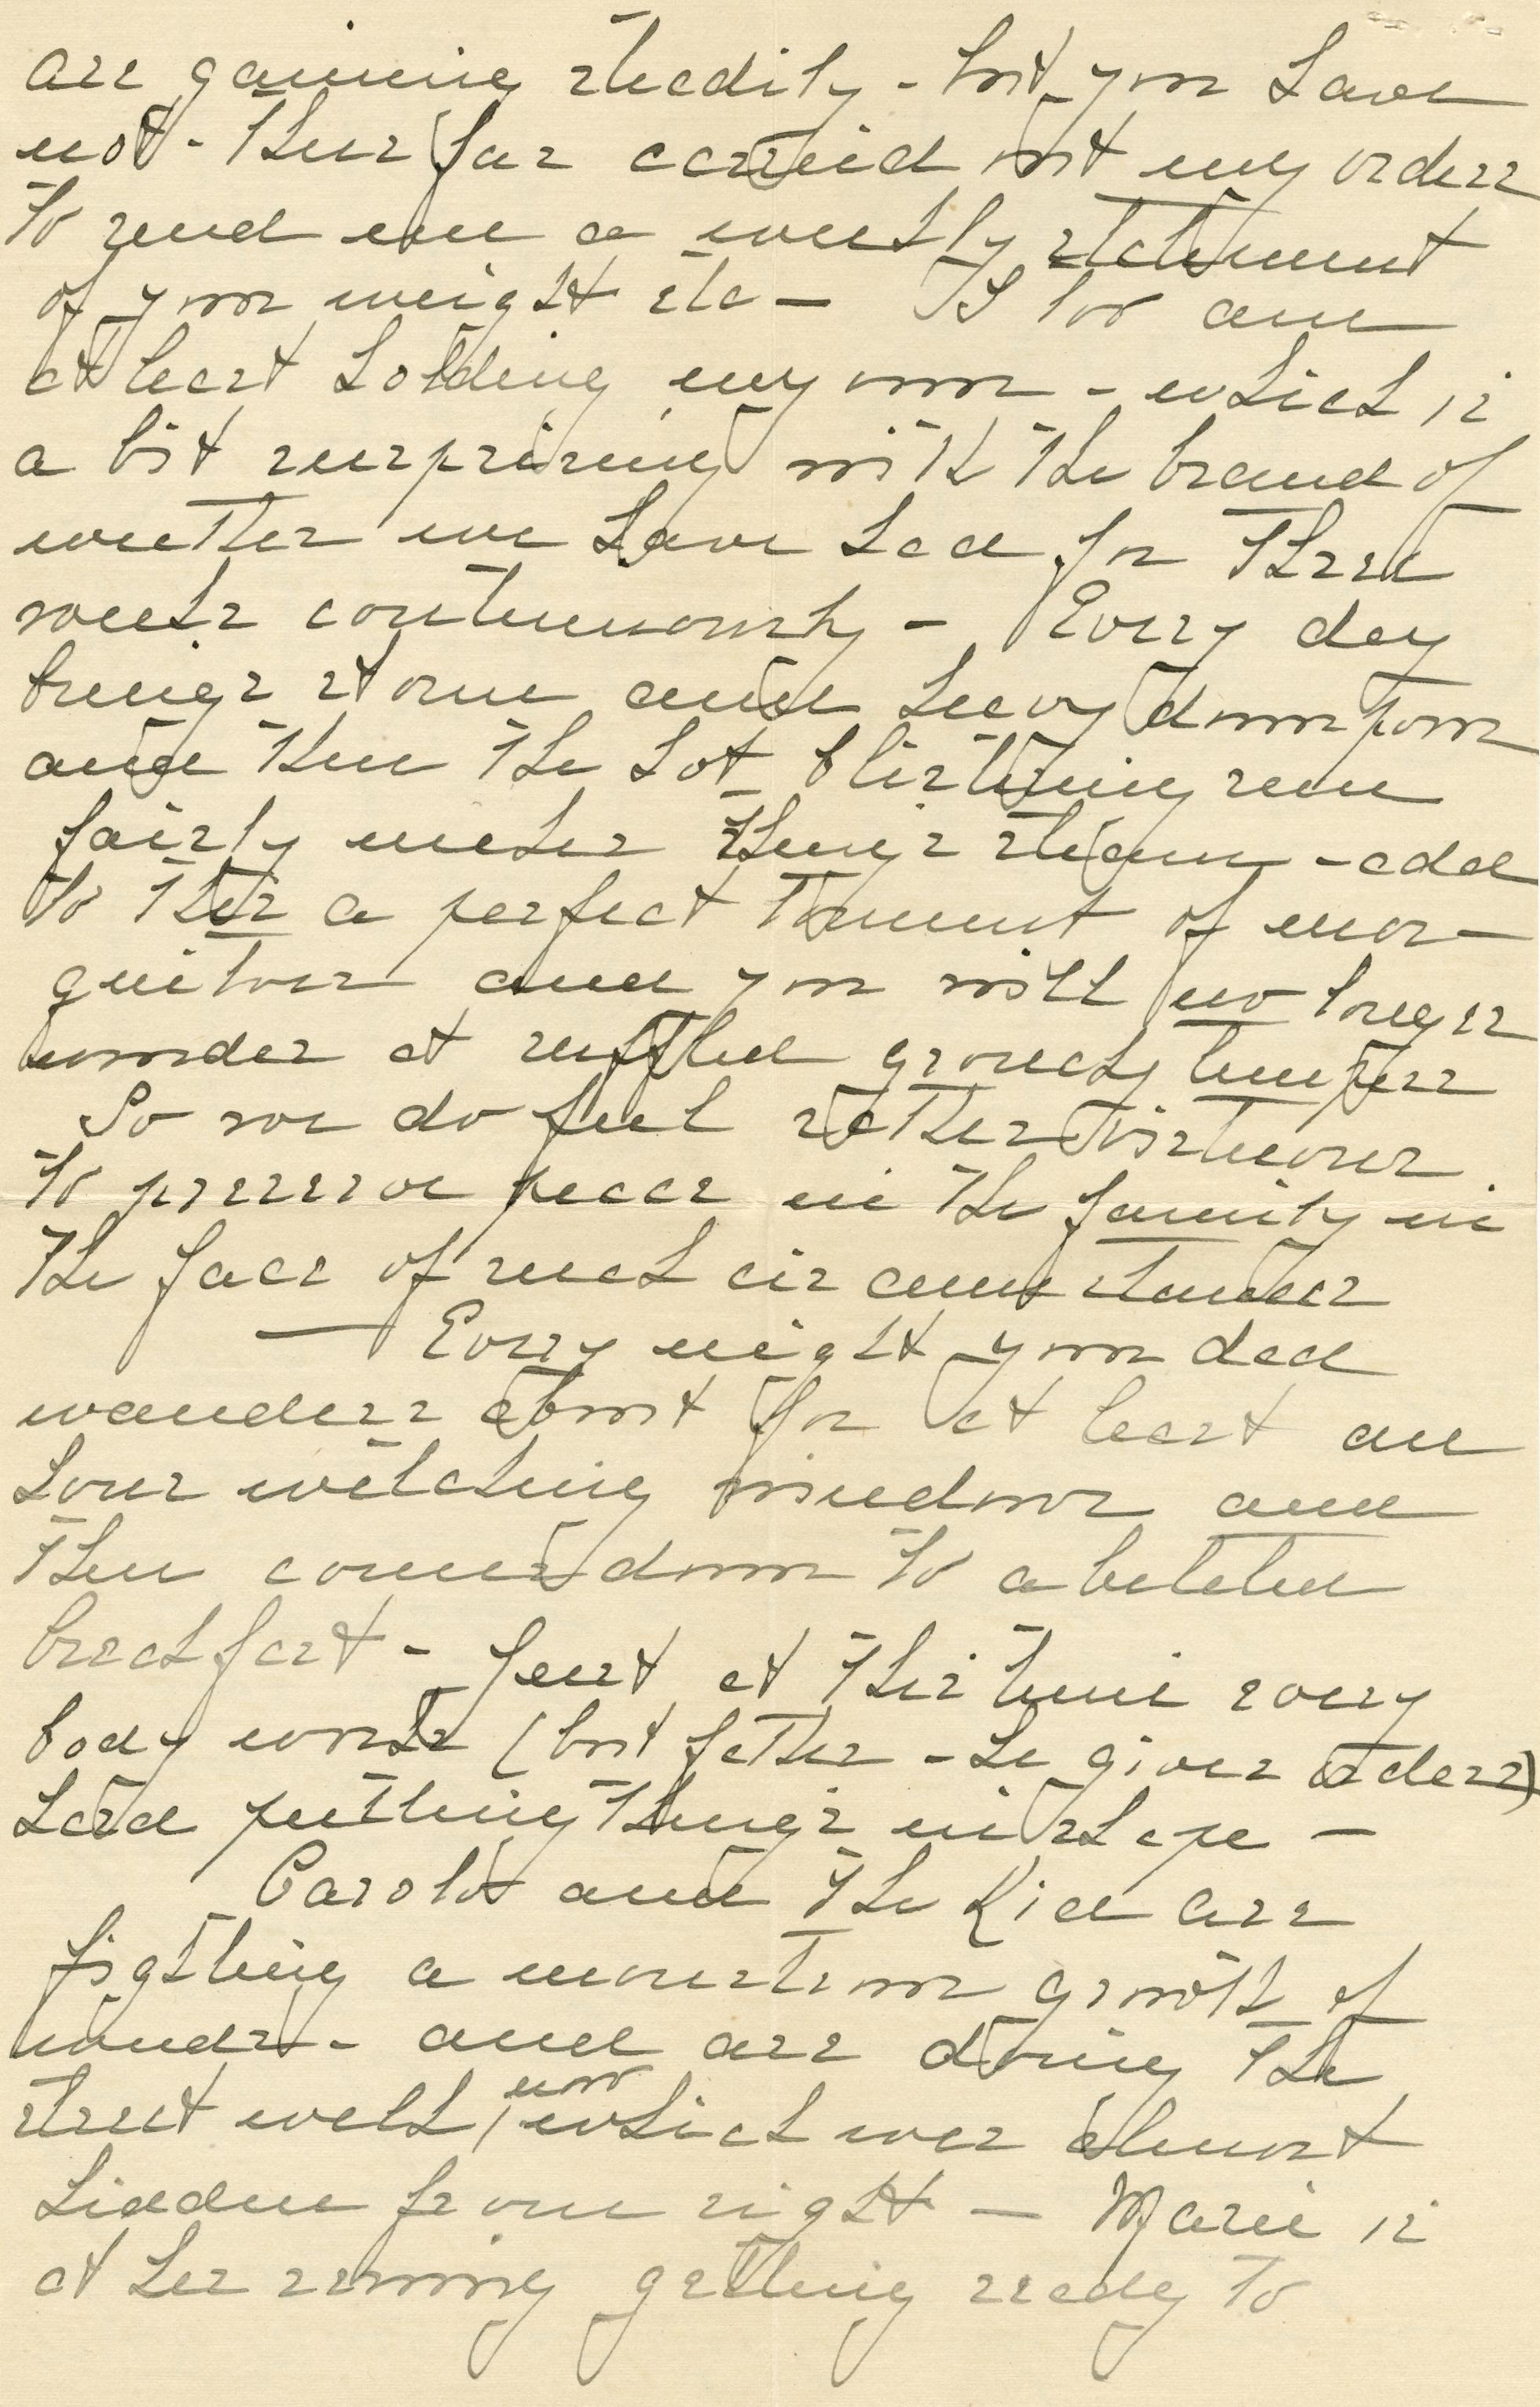 are gaining steadily - but you have
not - thus far carried out my orders
to send me a weekly statement
of your weight etc — I too am
at least holding my own - which is
a bit surprising with the brand of
weather we have had for three
weeks continuously - Every day
brings storm and heavy downpour
and then the hot blistering sun
fairly makes things steam - add
to this a perfect torment of mos-
quitoes and you will no longer
wonder at ruffled grouchy tempers
So we do feel rather virtuous
to preserve peace in the family in
the face of such circumstances
— Every night your dad
wanders about for at least an
hour watching windows and
then comes down to a belated
breakfast - Just at this time every
body works (but father - he gives orders)
hard putting things in shape —
Carola and the Kid are
fighting a monstrous growth of
weeds - and are doing the
street walk, now which was almost
hidden from sight — Marie is
at her sewing getting ready to